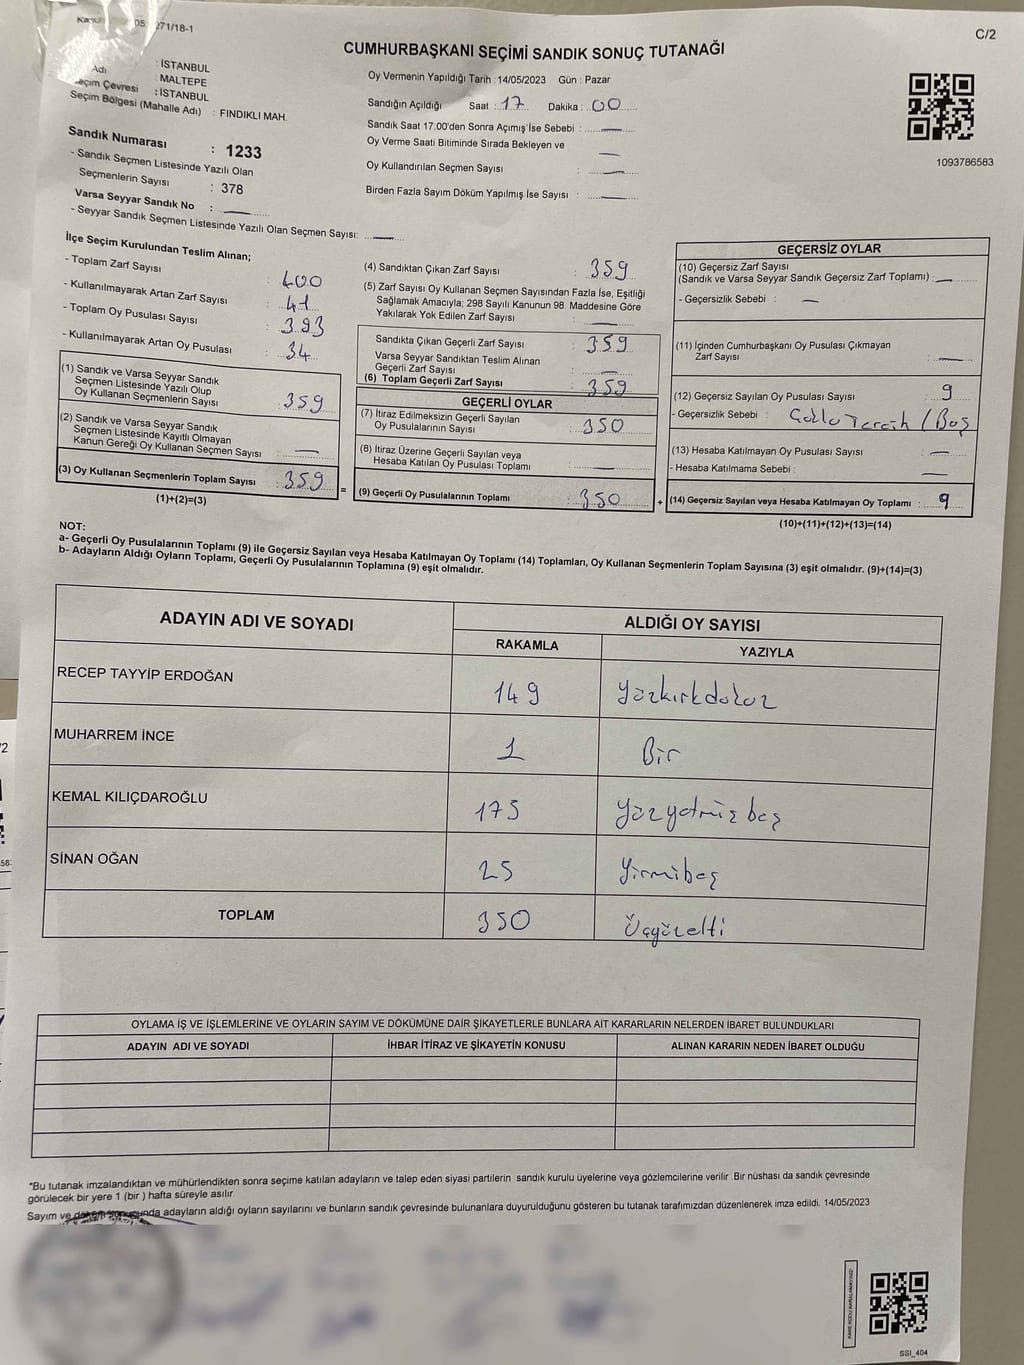 271/18-1
C/2
CUMHURBAŞKANI SEÇİMİ SANDIK SONUÇ TUTANAĞI
Adı : İSTANBUL
: MALTEPE
Seçim Çevresi : İSTANBUL
Seçim Bölgesi (Mahalle Adı) : FINDIKLI MAH.
Sandık Numarası : 1233
- Sandık Seçmen Listesinde Yazılı Olan
Seçmenlerin Sayısı : 378
Varsa Seyyar Sandık No :
- Seyyar Sandık Seçmen Listesinde Yazılı Olan Seçmen Sayısı:
Oy Vermenin Yapıldığı Tarih : 14/05/2023 Gün : Pazar
Sandığın Açıldığı Saat : 17 Dakika : 00
Sandık Saat 17:00'den Sonra Açımış İse Sebebi :
Oy Verme Saati Bitiminde Sırada Bekleyen ve
Oy Kullandırılan Seçmen Sayısı :
Birden Fazla Sayım Döküm Yapılmış İse Sayısı :
1093786583
İlçe Seçim Kurulundan Teslim Alınan;
- Toplam Zarf Sayısı : 400
- Kullanılmayarak Artan Zarf Sayısı : 41
- Toplam Oy Pusulası Sayısı : 393
- Kullanılmayarak Artan Oy Pusulası : 34
(1) Sandık ve Varsa Seyyar Sandık
Seçmen Listesinde Yazılı Olup
Oy Kullanan Seçmenlerin Sayısı : 359
(2) Sandık ve Varsa Seyyar Sandık
Seçmen Listesinde Kayıtlı Olmayan
Kanun Gereği Oy Kullanan Seçmen Sayısı :
(3) Oy Kullanan Seçmenlerin Toplam Sayısı : 359
(1)+(2)=(3)
=
(4) Sandıktan Çıkan Zarf Sayısı : 359
(5) Zarf Sayısı Oy Kullanan Seçmen Sayısından Fazla İse, Eşitliği
Sağlamak Amacıyla; 298 Sayılı Kanunun 98. Maddesine Göre
Yakılarak Yok Edilen Zarf Sayısı :
Sandıkta Çıkan Geçerli Zarf Sayısı : 359
Varsa Seyyar Sandıktan Teslim Alınan
Geçerli Zarf Sayısı :
(6) Toplam Geçerli Zarf Sayısı : 359
GEÇERLİ OYLAR
(7) İtiraz Edilmeksizin Geçerli Sayılan
Oy Pusulalarının Sayısı : 350
(8) İtiraz Üzerine Geçerli Sayılan veya
Hesaba Katılan Oy Pusulası Toplamı :
(9) Geçerli Oy Pusulalarının Toplamı : 350
+
GEÇERSİZ OYLAR
(10) Geçersiz Zarf Sayısı
(Sandık ve Varsa Seyyar Sandık Geçersiz Zarf Toplamı) :
- Geçersizlik Sebebi :
(11) İçinden Cumhurbaşkanı Oy Pusulası Çıkmayan
Zarf Sayısı :
(12) Geçersiz Sayılan Oy Pusulası Sayısı : 9
- Geçersizlik Sebebi : Çoklu Tercih / Boş
(13) Hesaba Katılmayan Oy Pusulası Sayısı :
- Hesaba Katılmama Sebebi :
(14) Geçersiz Sayılan veya Hesaba Katılmayan Oy Toplamı : 9
(10)+(11)+(12)+(13)=(14)
NOT:
a- Geçerli Oy Pusulalarının Toplamı (9) ile Geçersiz Sayılan veya Hesaba Katılmayan Oy Toplamı (14) Toplamları, Oy Kullanan Seçmenlerin Toplam Sayısına (3) eşit olmalıdır. (9)+(14)=(3)
b- Adayların Aldığı Oyların Toplamı, Geçerli Oy Pusulalarının Toplamına (9) eşit olmalıdır.
ADAYIN ADI VE SOYADI
ALDIĞI OY SAYISI
RAKAMLA YAZIYLA
RECEP TAYYİP ERDOĞAN 149 yüzkırkdokuz
MUHARREM İNCE 1 Bir
KEMAL KILIÇDAROĞLU 175 yüzyetmişbeş
SİNAN OĞAN 25 Yirmibeş
TOPLAM 350 Üçyüzelli
OYLAMA İŞ VE İŞLEMLERİNE VE OYLARIN SAYIM VE DÖKÜMÜNE DAİR ŞİKAYETLERLE BUNLARA AİT KARARLARIN NELERDEN İBARET BULUNDUKLARI
ADAYIN ADI VE SOYADI İHBAR İTİRAZ VE ŞİKAYETİN KONUSU ALINAN KARARIN NEDEN İBARET OLDUĞU
"Bu tutanak imzalandıktan ve mühürlendikten sonra seçime katılan adayların ve talep eden siyasi partilerin sandık kurulu üyelerine veya gözlemcilerine verilir. Bir nüshası da sandık çevresinde
görülecek bir yere 1 (bir ) hafta süreyle asılır.
Sayım ve döküm sonucunda adayların aldığı oyların sayılarını ve bunların sandık çevresinde bulunanlara duyurulduğunu gösteren bu tutanak tarafımızdan düzenlenerek imza edildi. 14/05/2023
SSI_404